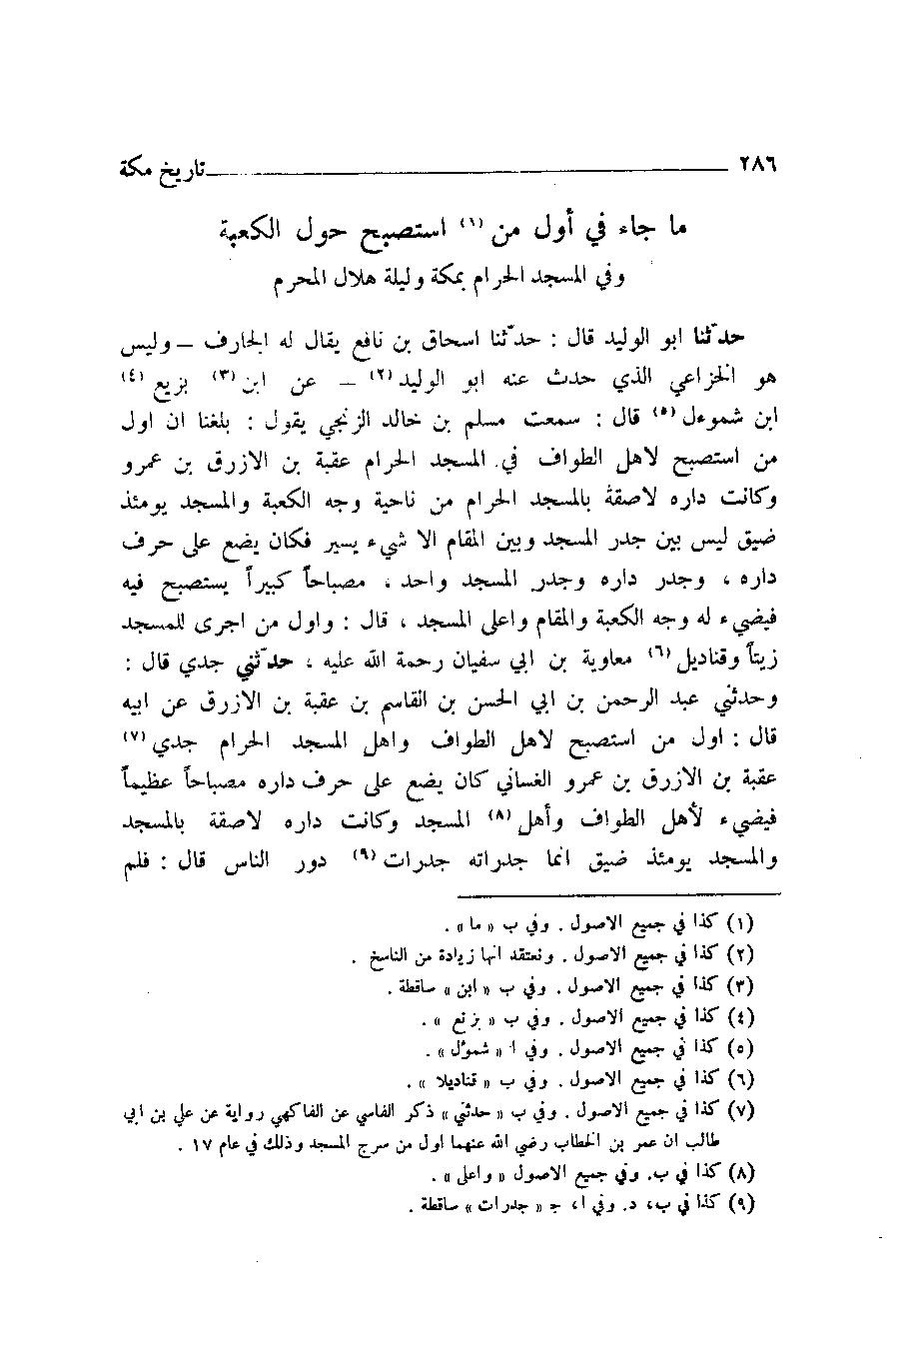 ٢٨٦ تاريخ مكة
ما جاء في أول من (١) استصبح حول الكعبة
وفي المسجد الحرام بمكة وليلة هلال المحرم
حدّثنا ابو الوليد قال : حدّثنا اسحاق بن نافع يقال له الجارف – وليس
هو الخزاعي الذي حدث عنه ابو الوليد (٢) – عن ابن (٣) بزيع (٤)
ابن شموءل (٥) قال : سمعت مسلم بن خالد الزنجي يقول : بلغنا ان اول
من استصبح لاهل الطواف في المسجد الحرام عقبة بن الازرق بن عمرو
وكانت داره لاصقة بالمسجد الحرام من ناحية وجه الكعبة والمسجد يومئذ
ضيق ليس بين جدر المسجد وبين المقام الا شيء يسير فكان يضع على حرف
داره ، وجدر داره وجدر المسجد واحد ، مصباحاً كبيراً يستصبح فيه
فيضيء له وجه الكعبة والمقام واعلى المسجد ، قال : واول من اجرى للمسجد
زيتاً وقناديل (٦) معاوية بن ابي سفيان رحمة الله عليه ، حدّثني جدي قال :
وحدثني عبد الرحمن بن ابي الحسن بن القاسم بن عقبة بن الازرق عن ابيه
قال : اول من استصبح لاهل الطواف واهل المسجد الحرام جدي (٧)
عقبة بن الازرق بن عمرو الغساني كان يضع على حرف داره مصباحاً عظيماً
فيضيء لأهل الطواف وأهل (٨) المسجد وكانت داره لاصقة بالمسجد
والمسجد يومئذ ضيق انما جدراته جدرات (٩) دور الناس قال : فلم
(١) كذا في جميع الاصول . وفي ب « ما » .
(٢) كذا في جميع الاصول . ونعتقد انها زيادة من الناسخ .
(٣) كذا في جميع الاصول . وفي ب « ابن » ساقطة .
(٤) كذا في جميع الاصول . وفي ب « بزتع » .
(٥) كذا في جميع الاصول . وفي ا « شمول » .
(٦) كذا في جميع الاصول . وفي ب « قناديلا » .
(٧) كذا في جميع الاصول . وفي ب « حدثني » ذكر الفاسي عن الفاكهي رواية عن علي بن ابي
طالب ان عمر بن الخطاب رضي الله عنهما اول من سرج المسجد وذلك في عام ١٧ .
(٨) كذا في ب. وفي جميع الاصول « واعلى » .
(٩) كذا في ب، د. وفي ا، ج « جدرات » ساقطة .